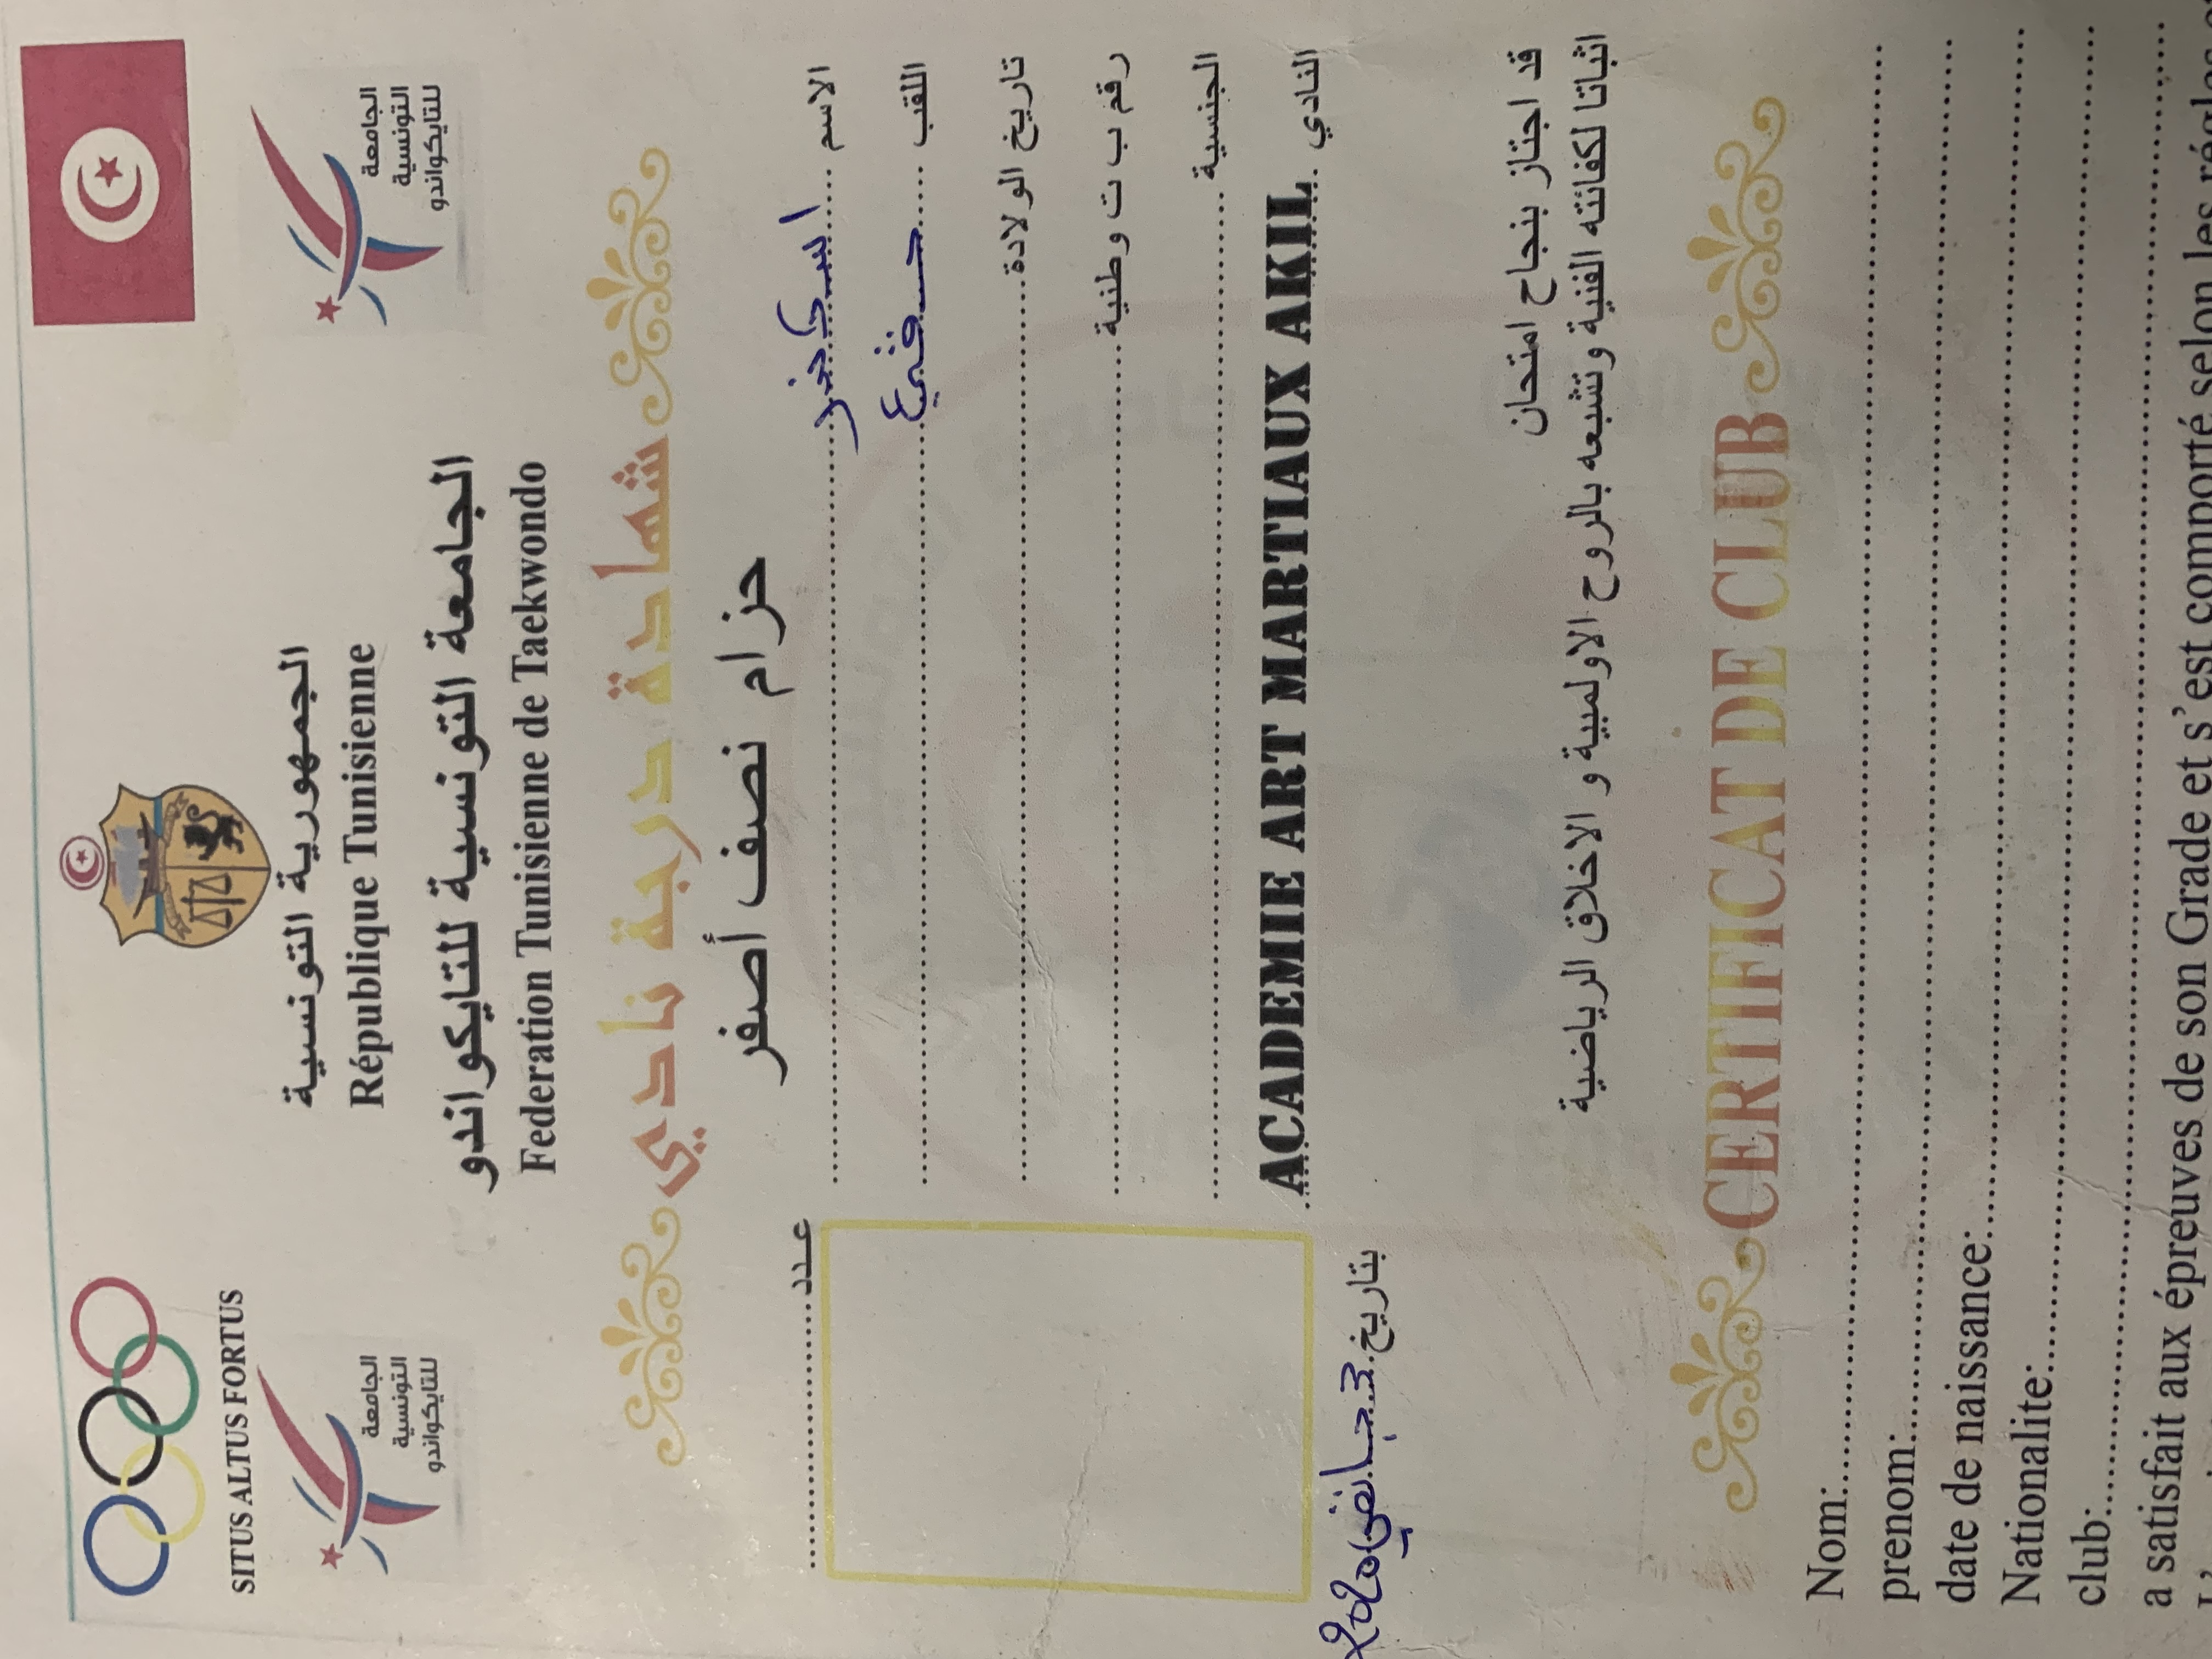 الجمهورية التونسية
République Tunisienne
SITUS ALTUS FORTUS
الجامعة
التونسية
للتايكواندو
الجامعة
التونسية
للتايكواندو
الجامعة التونسية للتايكواندو
Federation Tunisienne de Taekwondo
شهادة دربة نادي
حزام نصف أصفر
عدد
الاسم اسكندر
اللقب
تاريخ الولادة
رقم ب ت وطنية
الجنسية
النادي ACADEMIE ART MARTIAUX AKIL
بتاريخ 3 جانفي
قد اجتاز بنجاح امتحان
اثباتا لكفائته الفنية وتشبعه بالروح الاولمبية و الاخلاق الرياضية
CERTIFICAT DE CLUB
Nom:
prenom:
date de naissance:
Nationalite:
club:
a satisfait aux épreuves de son Grade et s'est comporté selon les